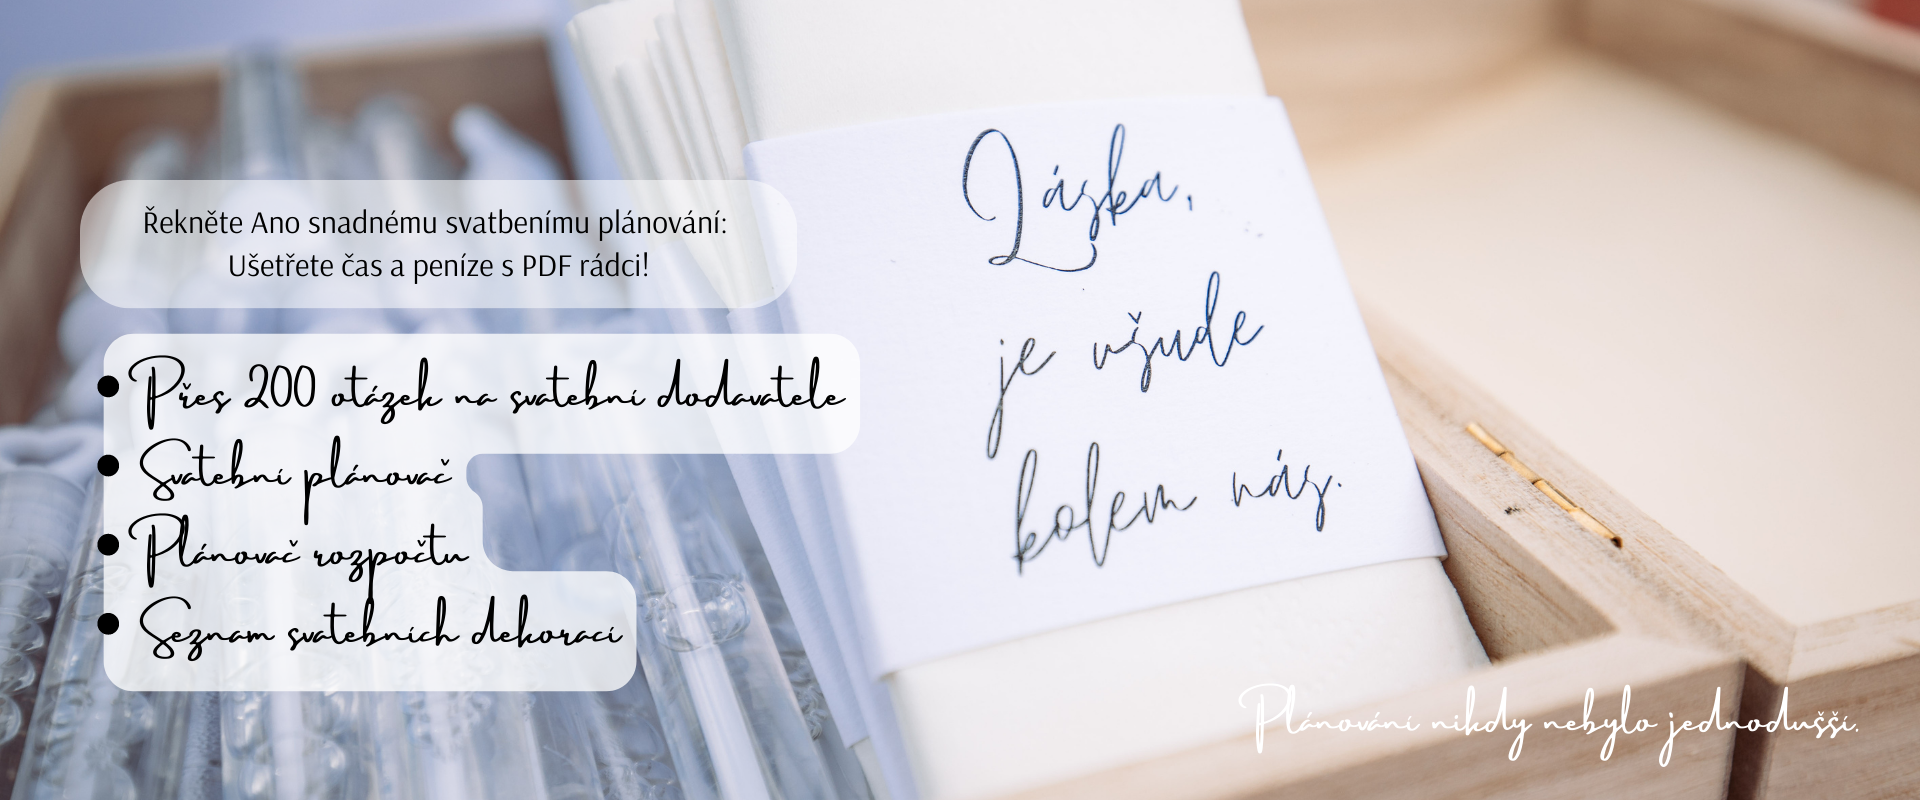 Řekněte Ano snadnému svatbenímu plánování:
Ušetřete čas a peníze s PDF rádci!
• Přes 200 otázek na svatební dodavatele
• Svatební plánovač
• Plánovač rozpočtu
• Seznam svatebních dekorací
Láska,
je všude
kolem nás.
Plánování nikdy nebylo jednodušší.